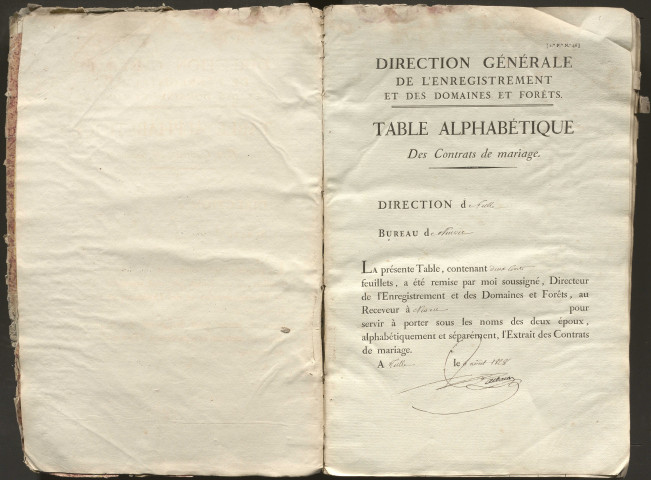 DIRECTION GÉNÉRALE
DE L'ENREGISTREMENT
ET DES DOMAINES ET FORÊTS.
TABLE ALPHABÉTIQUE
Des Contrats de mariage.
DIRECTION de Tulle
BUREAU de
LA présente Table, contenant deux cents
feuillets, a été remise par moi soussigné, Directeur
de l'Enregistrement et des Domaines et Forêts, au
Receveur à pour
servir à porter sous les noms des deux époux,
alphabétiquement et séparément, l'Extrait des Contrats
de mariage.
A Tulle le août